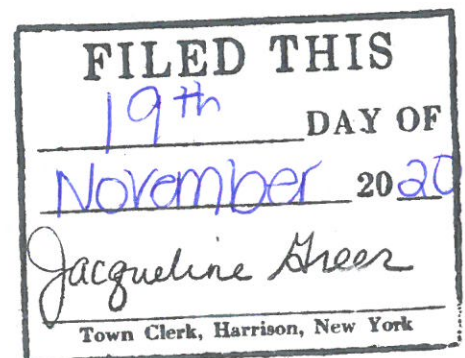 FILED THIS
19th DAY OF
November 2020
Jacqueline Greer
Town Clerk, Harrison, New York